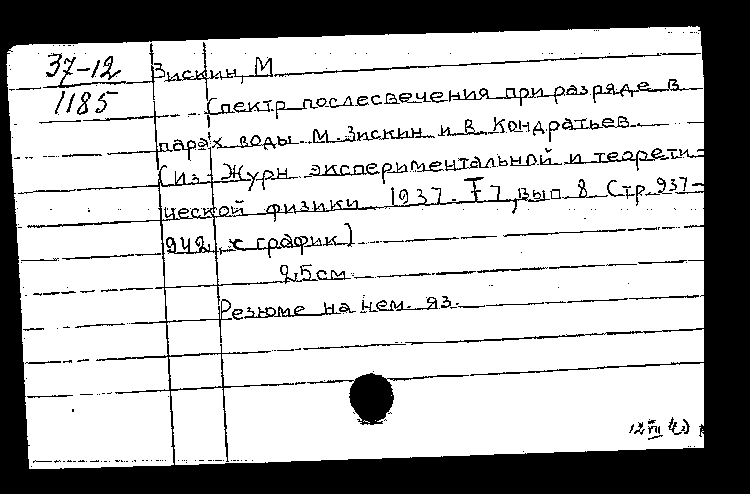 37-12 Зискин, М
1185 Спектр послесвечения при разряде в
парах воды. М. Зискин и В. Кондратьев.
(из: Журн экспериментальной и теорети-
ческой физики 1937. Т 7, вып. 8 Стр. 937-
942, с график)
25см.
Резюме на нем. яз.
12 VIII